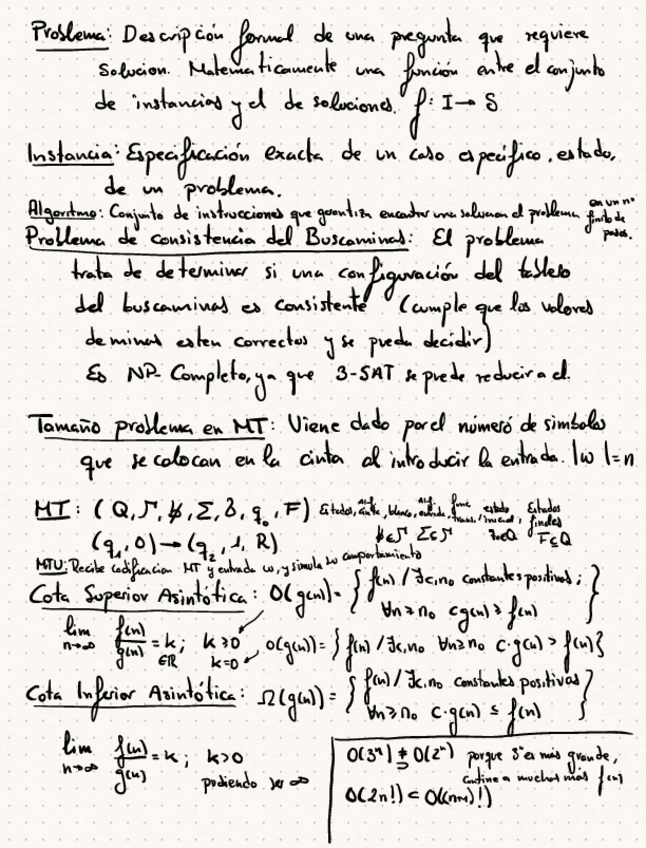 Problema: Descripción formal de una pregunta que requiere
solucion. Matematicamente una función entre el conjunto
de instancias y el de soluciones. f: I → S
Instancia: Especificación exacta de un caso específico, estado,
de un problema.
Algoritmo: Conjunto de instrucciones que garantiza encontrar una solucion al problema en un nº finito de pasos.
Problema de consistencia del Buscaminas: El problema
trata de determinar si una configuración del tablero
del buscaminas es consistente (cumple que los valores
de minas esten correctos y se pueda decidir)
Es NP-Completo, ya que 3-SAT se puede reducir a el.
Tamaño problema en MT: Viene dado por el número de simbolos
que se colocan en la cinta al introducir la entrada. |w|=n
MT: (Q, Γ, ƀ, Σ, δ, q₀, F) Estados, alf. cinta, blanco, alf. entrada, func. trans., estado inicial, Estados finales
(q₁, 0) → (q₂, 1, R) ƀ∈Γ Σ⊆Γ q₀∈Q F⊆Q
MTU: Recibe codificacion MT y entrada w, y simula su comportamiento
Cota Superior Asintótica: O(g(n)) = { f(n) / ∃c, n₀ constantes positivas;
∀n≥n₀ cg(n) ≥ f(n) }
lim n→∞ f(n)/g(n) = k; ∈ℝ k≥0 k=0 o(g(n)) = { f(n) / ∃c, n₀ ∀n≥n₀ c·g(n) > f(n) }
Cota Inferior Asintótica: Ω(g(n)) = { f(n) / ∃c, n₀ constantes positivas
∀n≥n₀ c·g(n) ≤ f(n) }
lim n→∞ f(n)/g(n) = k; k>0
pudiendo ser ∞
O(3ⁿ) ≠ ⊃ O(2ⁿ) porque 3ⁿ es más grande,
contiene a muchos más f(n)
O(2n!) ⊂ O((n+1)!)